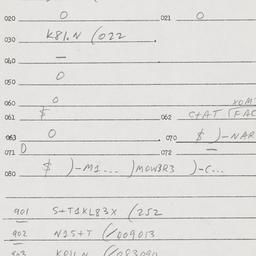 020 O 021 O
030 K81.N (022
040 —
050 O
060 O XOM
061 $ 062 C+AT (FAC
063 O 070 $ )-NAR
071 D 072 —
080 $ )-M1... )MOW3R3 )-C...
901 S+T1KL83X (252
902 N1S+T (/009013
903 K81.N (/083090